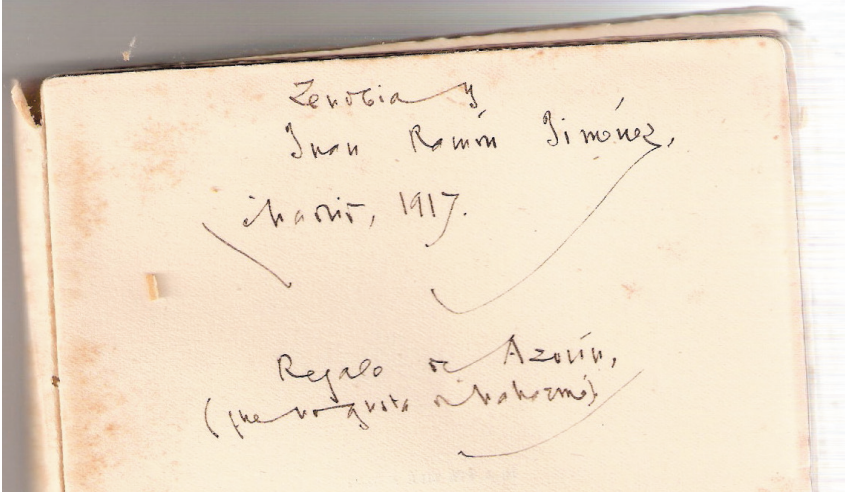 Zenobia y
Juan Ramón Jiménez,
Madrid, 1917.
Regalo de Azorín,
(que no gusta de Mahoma)